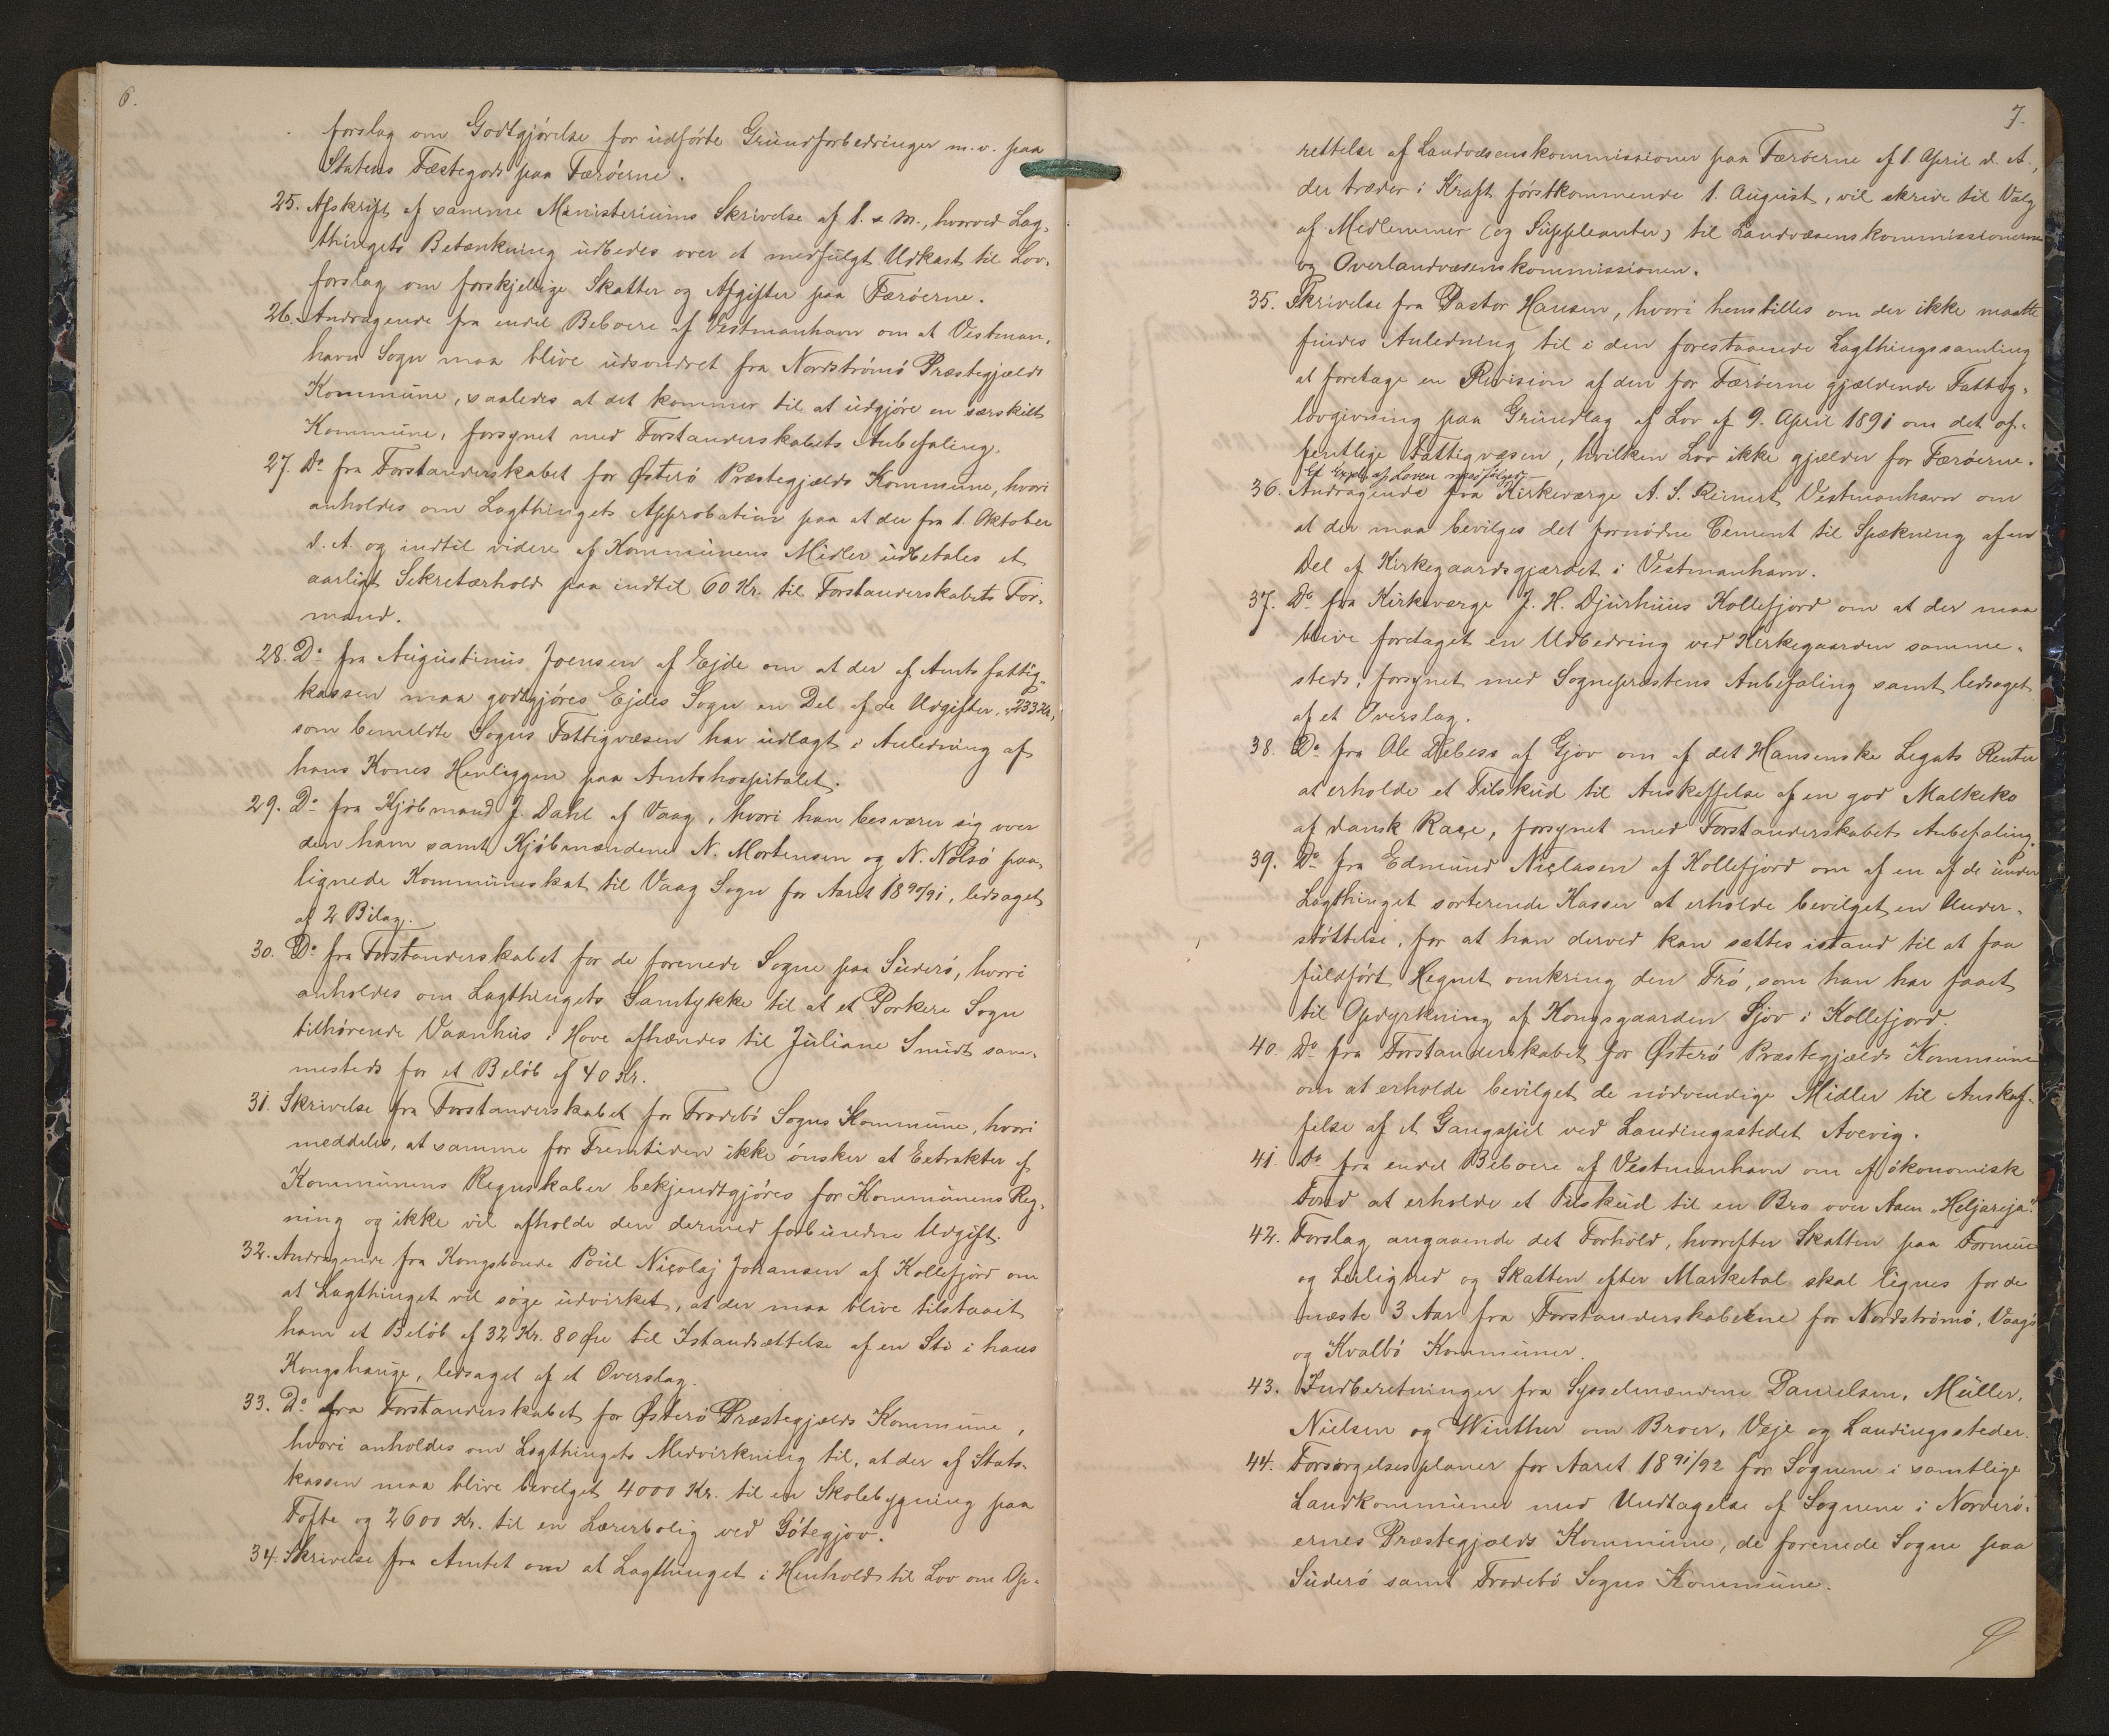 6.
forslag om Godtgjörelse for udförte Grundforbedringer m.v. paa
Statens Fæstegods paa Færöerne.
25. Afskrift af samme Ministeriums Skrivelse af 1. s. M., hvorved Lag-
thingets Betænkning udbedes over et medfulgt Udkast til Lov-
forslag om forskjellige Skatter og Afgifter paa Færöerne.
26. Andragende fra endel Beboere af Vestmanhavn om at Vestman-
havn Sogn maa blive udsondret fra Nordströmö Præstegjælds
Kommune, saaledes at det kommer til at udgjöre en særskilt
Kommune, forsynet med Forstanderskabets Anbefaling.
27. Do fra Forstanderskabet for Österö Præstegjælds Kommune, hvori
anholdes om Lagthingets Approbation paa at der fra 1. Oktober
d. A. og indtil videre af Kommunens Midler udbetales et
aarligt Sekretærhold paa indtil 60 Kr. til Forstanderskabets For-
mand.
28. Do fra Augustinus Joensen af Ejde om at der af Amtsfattig-
kassen maa godtgjöres Ejdes Sogn en Del af de Udgifter, 233 Kr,
som bemeldte Sogns Fattigvæsen har udlagt i Anledning af
hans Kones Henliggen paa Amtshospitalet.
29. Do fra Kjöbmand J. Dahl af Vaag, hvori han besværer sig over
den ham samt Kjöbmændene N. Mortensen og N. Nolsö paa-
lignede Kommuneskat til Vaag Sogn for Aaret 1890/91, ledsaget
af 2 Bilag.
30. Do fra Forstanderskabet for de forenede Sogne paa Suderö, hvori
anholdes om Lagthingets Samtykke til at et Porkere Sogn
tilhörende Vaanhus i Hove afhændes til Juliane Smidt sam-
mesteds for et Belöb af 40 Kr.
31. Skrivelse fra Forstanderskabet for Frodebö Sogns Kommune, hvori
meddeles, at samme for Fremtiden ikke önsker at Extrakter af
Kommunens Regnskaber bekjendtgjöres for Kommunens Reg-
ning og ikke vil afholde den dermed forbundne Udgift.
32. Andragende fra Kongsbonde Poul Nicolaj Johansen af Kollefjord om
at Lagthinget vil söge udvirket, at der maa blive tilstaaet
ham et Belöb af 32 Kr. 80 Öre til Istandsættelse af en Sti i hans
Kongshauge, ledsaget af et Overslag.
33. Do fra Forstanderskabet for Österö Præstegjælds Kommune,
hvori anholdes om Lagthingets Medvirkning til, at der af Stats-
kassen maa blive bevilget 4000 Kr. til en Skolebygning paa
Tofte og 2600 Kr. til en Lærerbolig ved Götegjov.
34. Skrivelse fra Amtet om at Lagthinget i Henhold til Lov om Op-
7.
rettelse af Landvæsenskommissioner paa Færöerne af 1. April d. A.,
der træder i Kraft förstkommende 1. August, vil skride til Valg
af Medlemmer (og Suppleanter) til Landvæsenskommissionerne
og Overlandvæsenskommissionen.
35. Skrivelse fra Pastor Hansen, hvori henstilles om der ikke maatte
findes Anledning til i den forestaaende Lagthingssamling
at foretage en Revision af den for Færöerne gjældende Fattig-
lovgivning paa Grundlag af Lov af 9. April 1891 om det of-
fentlige Fattigvæsen, hvilken Lov ikke gjælder for Færöerne.
Et Expl. af Loven medfölged
36. Andragende fra Kirkeværge A. S. Reinert Vestmanhavn om
at der maa bevilges det fornödne Cement til Spækning af en
Del af Kirkegaardsgjærdet i Vestmanhavn.
37. Do fra Kirkeværge J. H. Djurhuus Kollefjord om at der maa
blive foretaget en Udbedring ved Kirkegaarden samme-
steds, forsynet med Sognepræstens Anbefaling samt ledsaget
af et Overslag.
38. Do fra Ole Debess af Gjov om af det Hansenske Legats Renter
at erholde et Tilskud til Anskaffelse af en god Malkeko
af dansk Race, forsynet med Forstanderskabets Anbefaling.
39. Do fra Edmund Niclasen af Kollefjord om af en af de under
Lagthinget sorterende Kasser at erholde bevilget en Under-
stöttelse, for at han derved kan sættes istand til at faa
fuldfört Hegnet omkring den Trö, som han har faaet
til Opdyrkning af Kongsgaarden Sjov i Kollefjord.
40. Do fra Forstanderskabet for Österö Præstegjælds Kommune
om at erholde bevilget de nödvendige Midler til Anskaf-
felse af et Gangspil ved Landingsstedet Avevig.
41. Do fra endel Beboere af Vestmanhavn om af ökonomisk
Fond at erholde et Tilskud til en Bro over Aaen „Heljareja".
42. Forslag angaaende det Forhold, hvorefter Skatten paa Formue
og Leilighed og Skatten efter Marketal skal lignes for de
næste 3 Aar fra Forstanderskaberne for Nordströmö, Vaagö
og Kvalbö Kommuner.
43. Indberetninger fra Sysselmændene Danielsen, Müller,
Nielsen og Winther om Broer, Veje og Landingssteder.
44. Forsörgelsesplaner for Aaret 1891/92 for Sognene i samtlige
Landkommuner med Undtagelse af Sognene i Norderö-
ernes Præstegjælds Kommune, de forenede Sogne paa
Suderö samt Frodebö Sogns Kommune.